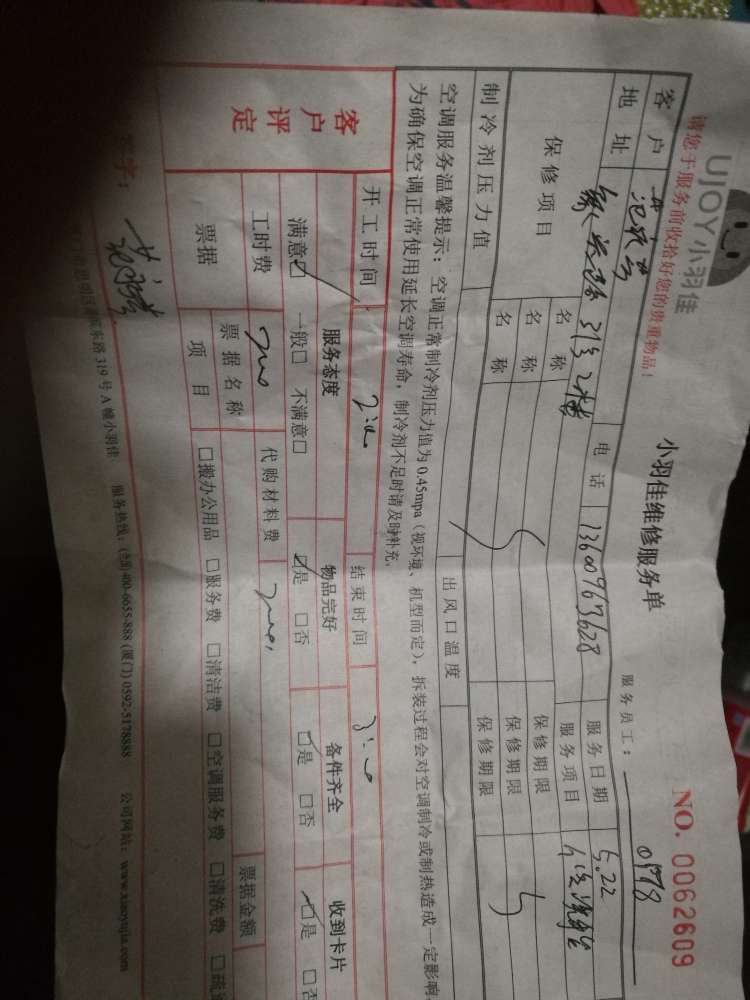 UJOY小羽佳
请您于服务前收拾好您的贵重物品！
小羽佳维修服务单
NO. 0062609
服务员工： 0978
客户
电话 13609763628
服务日期 5.22
地址
服务项目
保修项目 名称 保修期限
名称 保修期限
名称 保修期限
制冷剂压力值 出风口温度
空调服务温馨提示：空调正常制冷剂压力值为0.45mpa（视环境、机型而定），拆装过程会对空调制冷或制热造成一定影响
为确保空调正常使用延长空调寿命，制冷剂不足时请及时补充。
客户评定
开工时间 结束时间
服务态度 物品完好 备件齐全 收到卡片
满意□ 一般□ 不满意□ □是 □否 □是 □否 □是 □否
工时费 代购材料费
票据 票据名称 票据金额
项目 □搬办公用品 □服务费 □清洁费 □空调服务费 □清洗费
字：
东路319号A幢小羽佳 服务热线：(全国)400-6655-888 (厦门)0592-5178888 公司网站：www.xiaoyujia.com